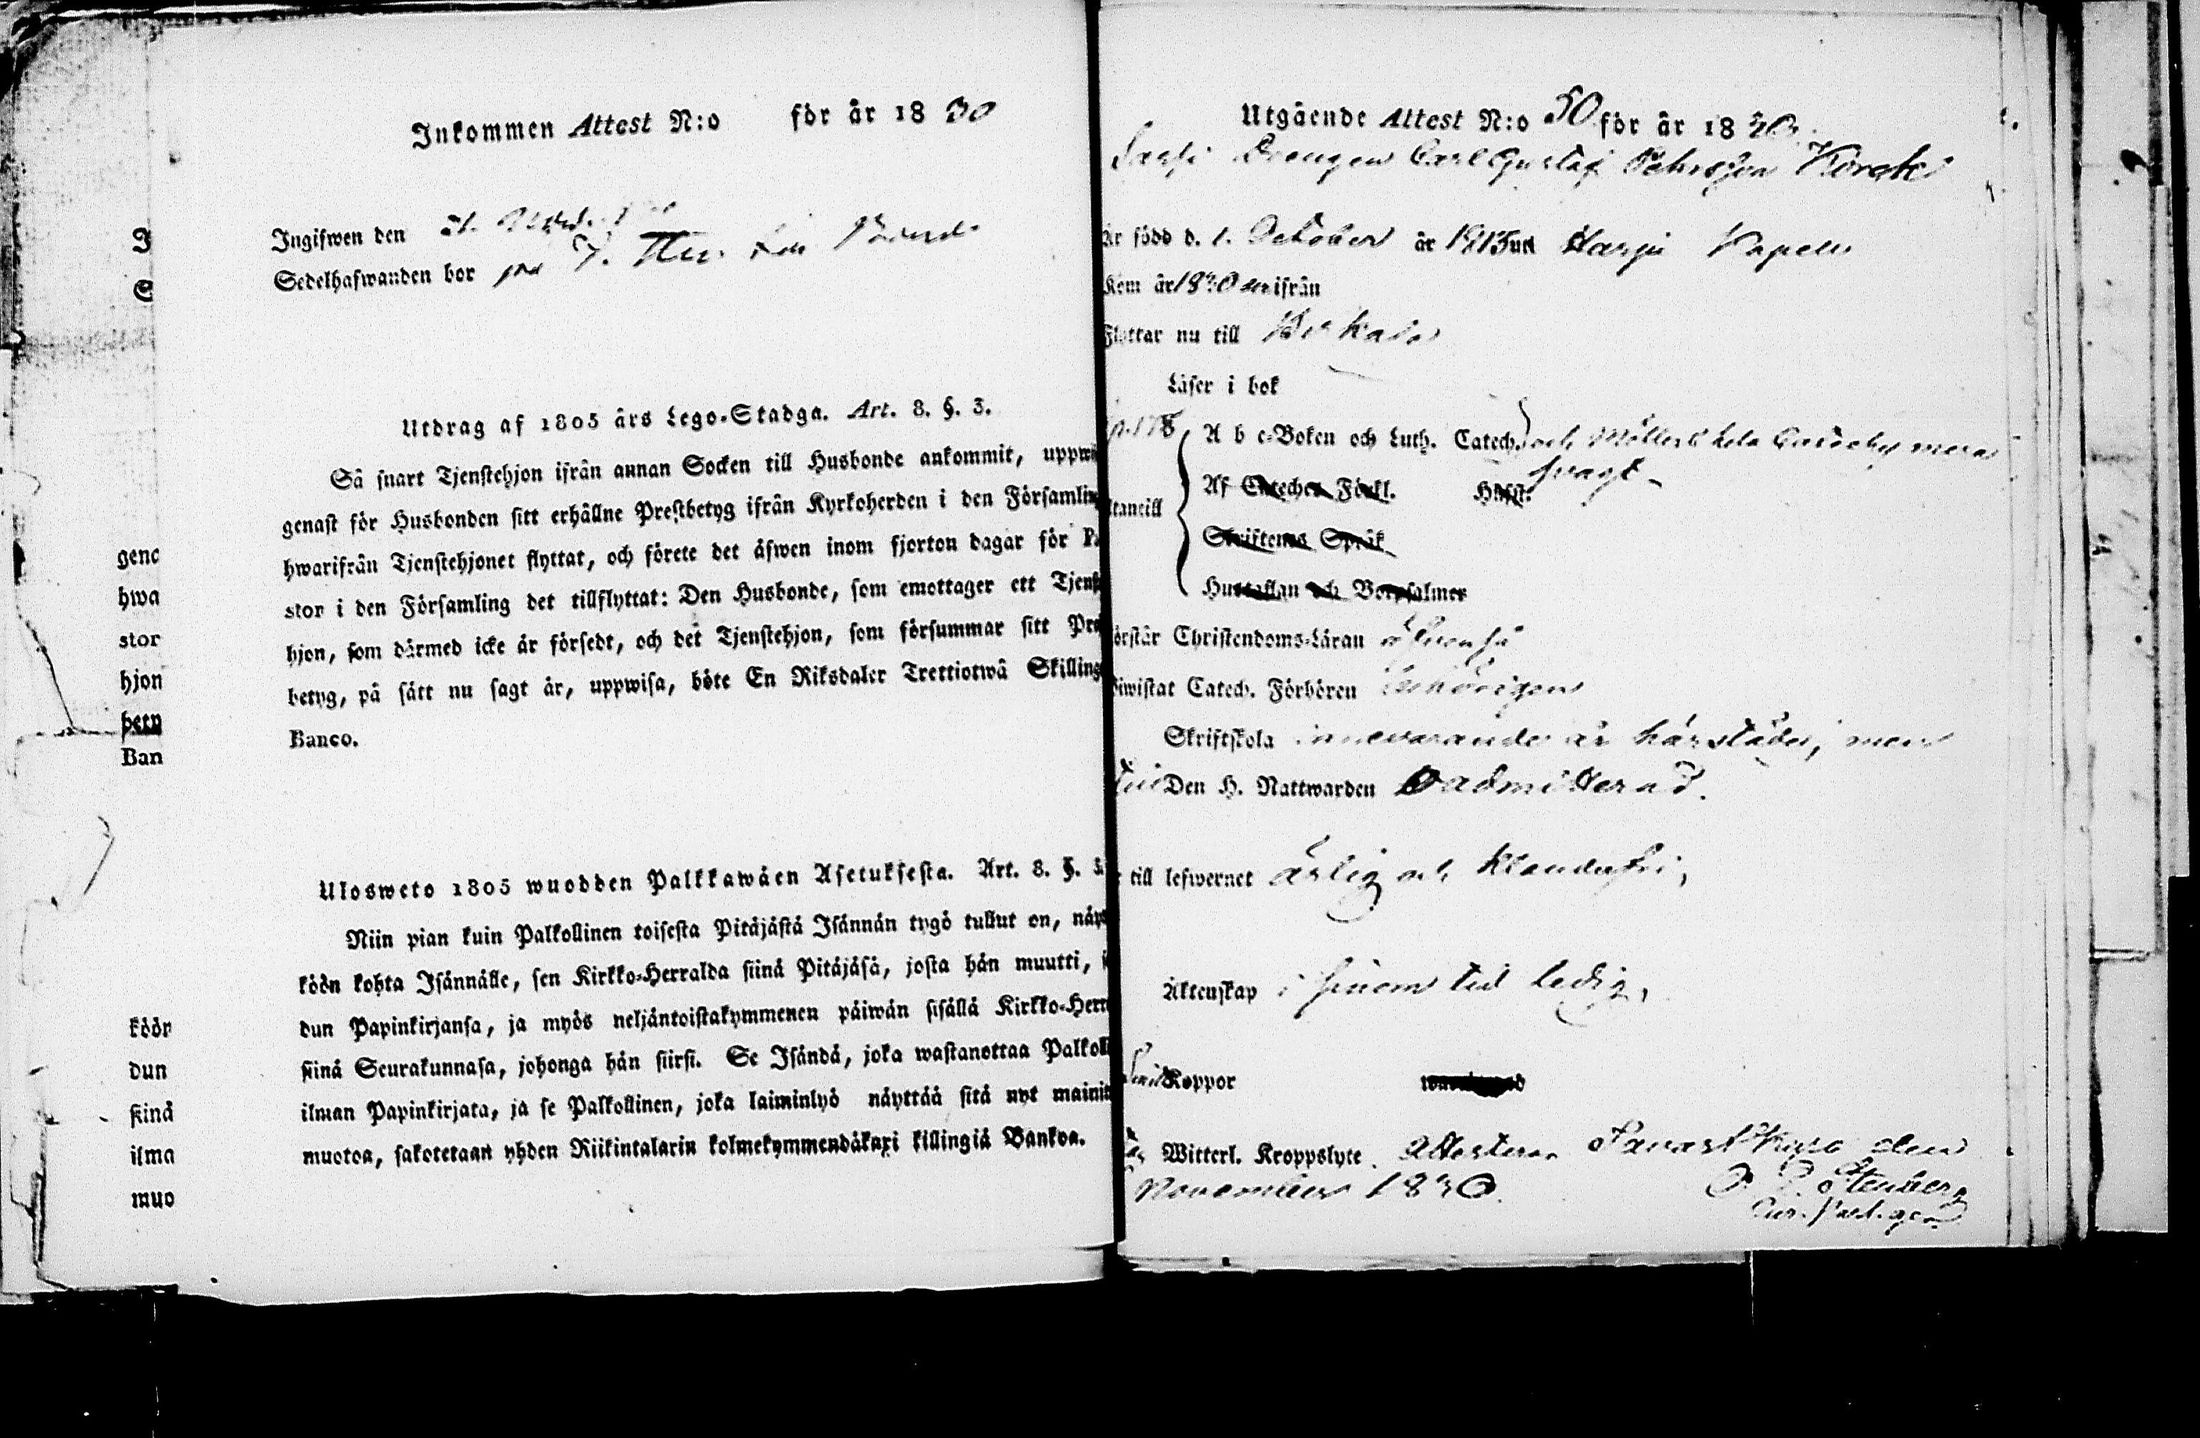 Inkommen Attest N:o för år 1830
Ingifwen den
Sedelhafwanden bor på
Utdrag af 1805 års Lego-Stadga. Art. 8. §. 3.
Så snart Tjenstehjon ifrån annan Socken till Husbonde ankommit, uppwi
genast för Husbonden sitt erhållne Prestbetyg ifrån Kyrkoherden i den Församling
hwarifrån Tjenstehjonet flyttat, och förete det äfwen inom fjorton dagar för Pa
stor i den Församling det tillflyttat: Den Husbonde, som emottager ett Tjenste
hjon, som därmed icke är försedt, och det Tjenstehjon, som försummar sitt Pre
betyg, på sätt nu sagt är, uppwisa, böte En Riksdaler Trettiotwå Skilling
Banco.
Ulosweto 1805 wuodden Palkkawäen Asetuksesta. Art. 8. §. 3.
Niin pian kuin Palkollinen toisesta Pitäjästä Isännän tygö tullut on, näyt
köön kohta Isännälle, sen Kirkko-Herralda siinä Pitäjäsä, josta hän muutti,
dun Papinkirjansa, ja myös neljäntoistakymmenen päiwän sisällä Kirkko-Herra
siinä Seurakunnasa, johonga hän siirsi. Se Isändä, joka wastanottaa Palkolli
ilman Papinkirjata, ja se Palkollinen, joka laiminlyö näyttää sitä nyt mainit
muotoa, sakotetaan yhden Riikintalarin kolmekymmendäkaxi killingiä Bankoa.
I
S
gena
hwa
stor
hjon
bety
Ban
köön
dun
siinä
ilma
muo
Utgående Attest N:o 50 för år 1830.
Drengen Carl Gustaf Pehrsson
Är född d. 1. October år 1815 uti Harju Kapell
Kom år 1830 ifrån
Flyttar nu till Birkala
Läser i bok
p. 178
A b c-Boken och Luth. Catech. och Möllers hela Catechs mera
svagt
Af Cateches Förkl. Husst.
utantill
Skriftenes Språk
Hustaflan och Botpsalmer
örstår Christendoms-Läran
biwistat Catech. Förhören behörigen
Skriftskola innevarande år härstädes, men
Den H. Nattwarden admitterad.
till lefwernet ärlig och klanderfri,
Äktenskap i sinom tid ledig,
Koppor
Witterl. Kroppslyte. Attesterar den
November 1830.
Stenberg